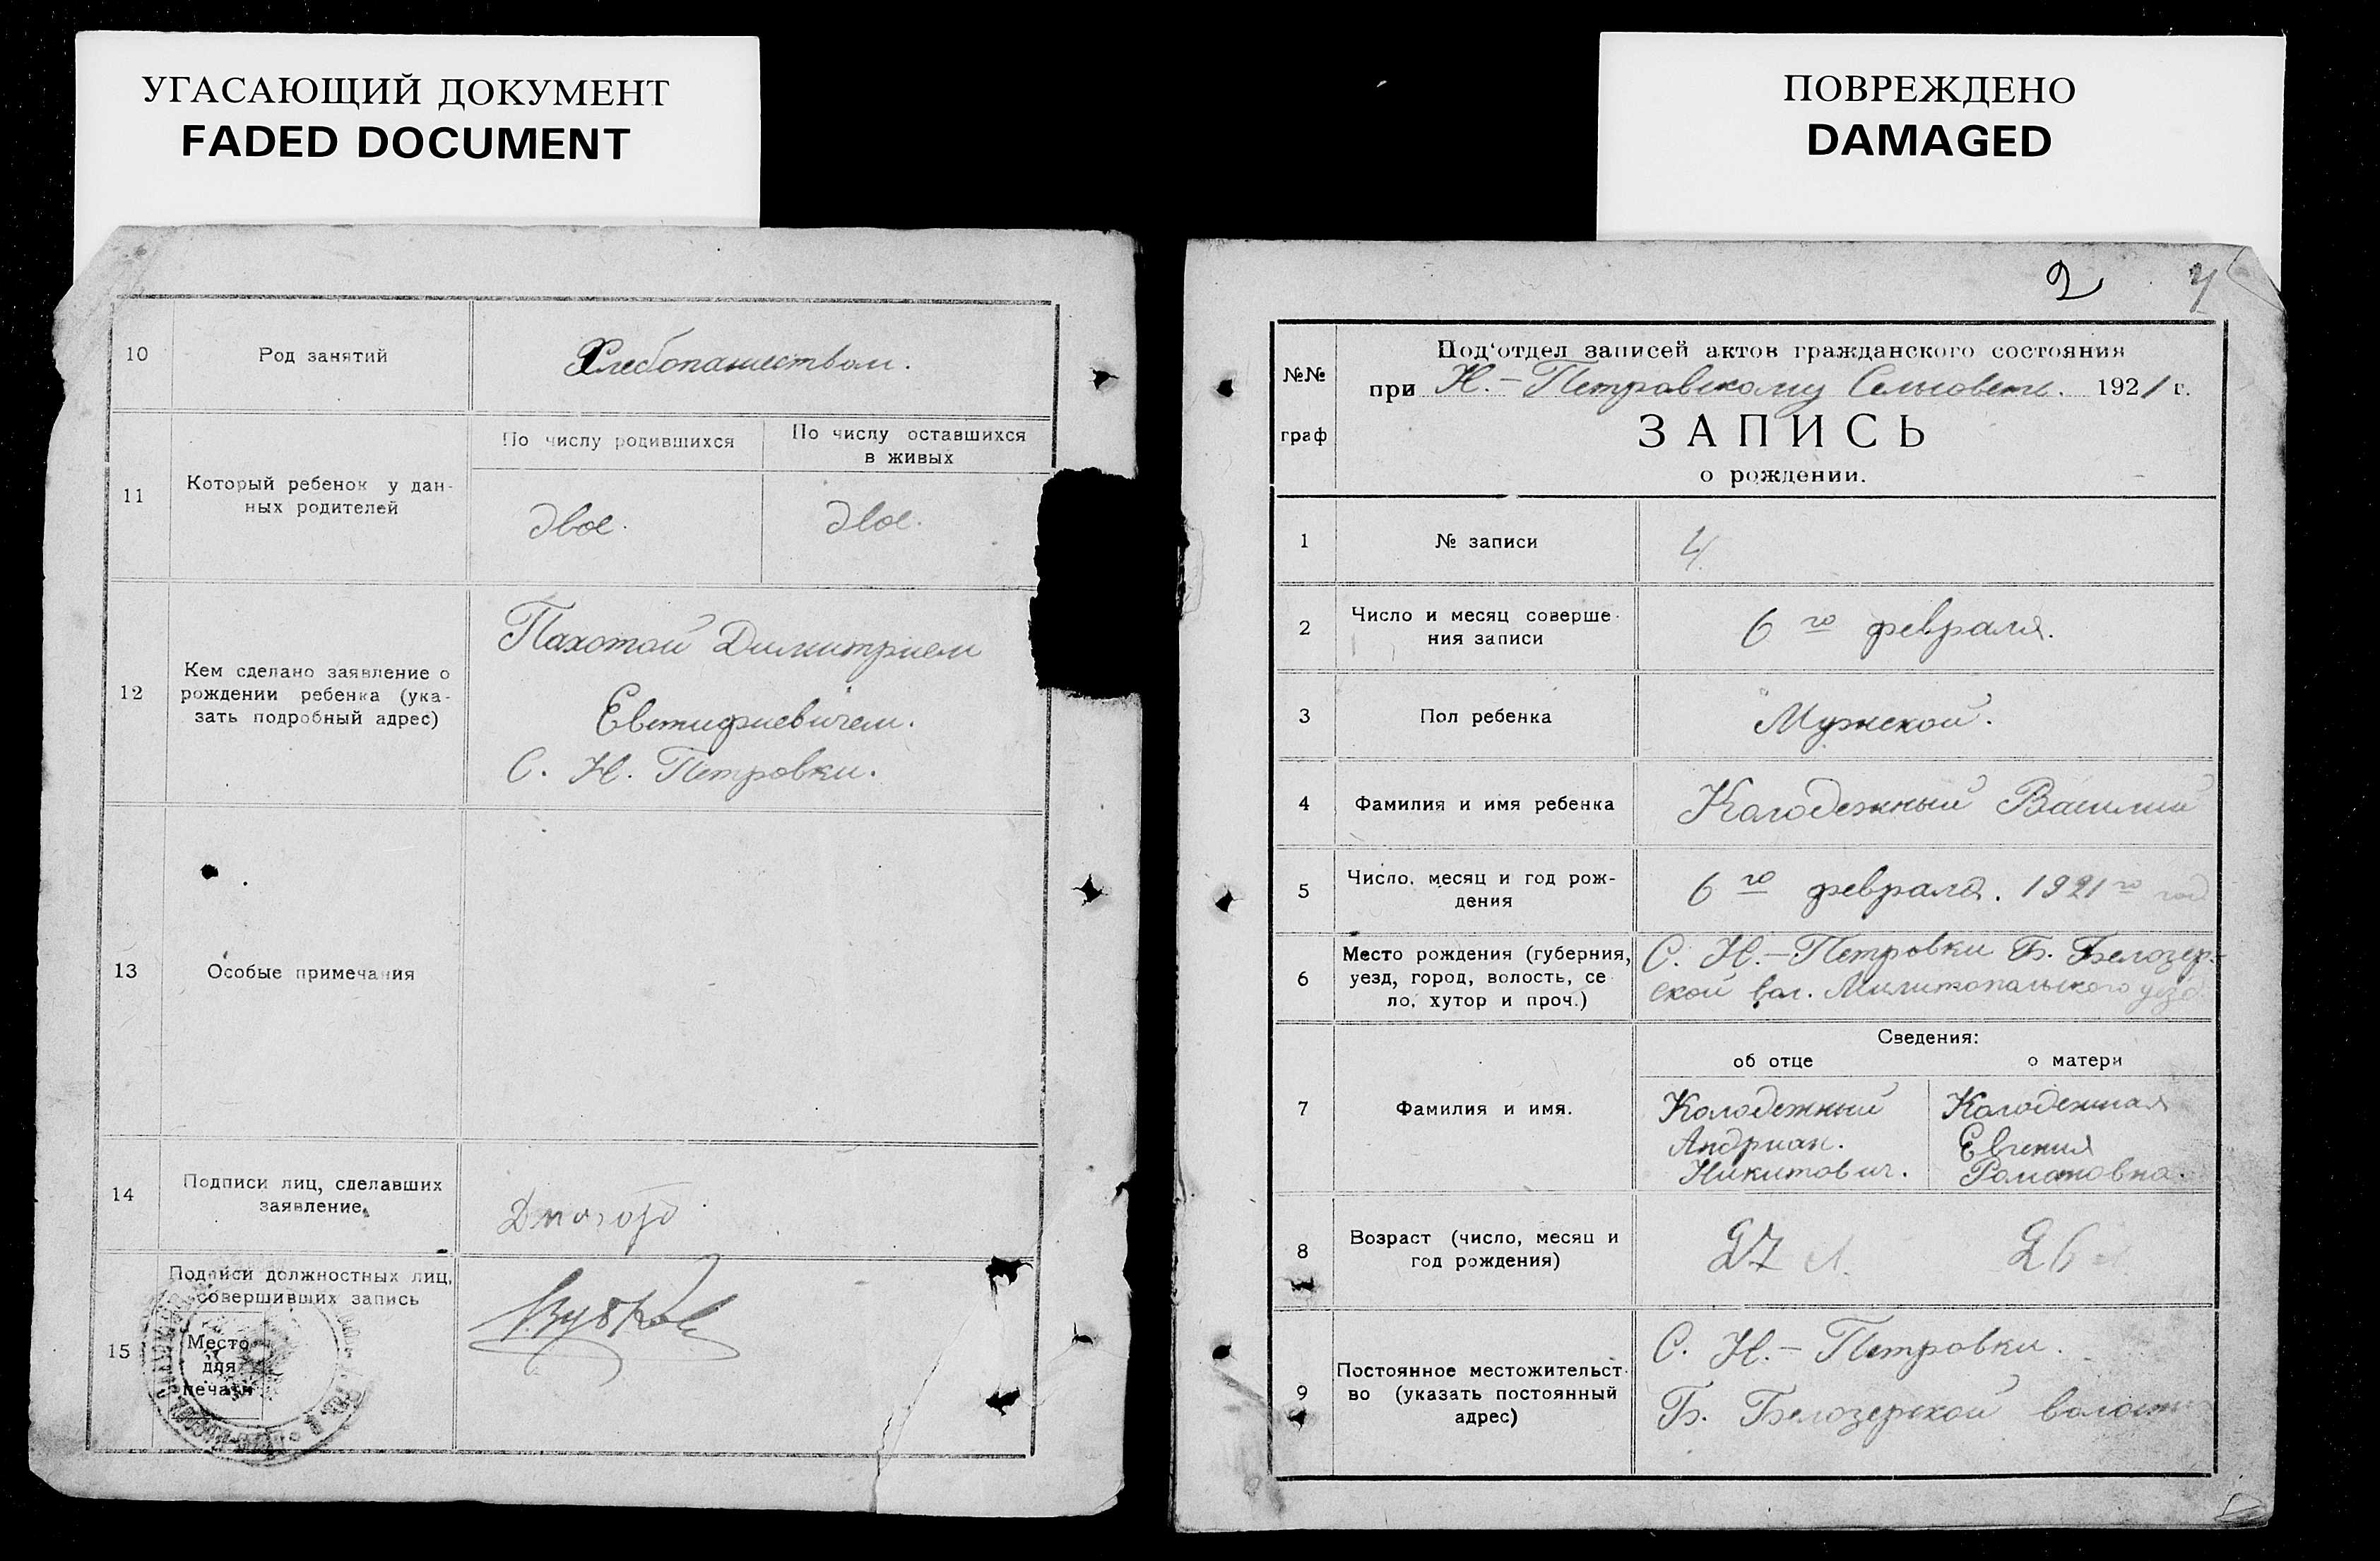 УГАСАЮЩИЙ ДОКУМЕНТ
FADED DOCUMENT
10
Род занятий
Хлебопашеством.
11
Который ребенок у дан-
ных родителей
По числу родившихся
По числу оставшихся
в живых
двое.
двое.
12
Кем сделано заявление о
рождении ребенка (ука-
зать подробный адрес)
Пахотой Димитрием
Евтифиевичем.
С. Н. Петровки.
13
Особые примечания
14
Подписи лиц, сделавших
заявление.
15
Подписи должностных лиц,
совершивших запись
Место
для
печати
ПОВРЕЖДЕНО
DAMAGED
2 4
№№
граф
Под'отдел записей актов гражданского состояния
при Н.-Петровскому Сельсовете. 1921 г.
ЗАПИСЬ
о рождении.
1
№ записи
4
2
Число и месяц соверше-
ния записи
6 го февраля.
3
Пол ребенка
Мужской.
4
Фамилия и имя ребенка
Колодежный Василий
5
Число, месяц и год рож-
дения
6 го февраля. 1921 го год
6
Место рождения (губерния,
уезд, город, волость, се
ло, хутор и проч.)
С. Н.-Петровки Б. Белозер-
ской вол. Милитопольского уезд
Сведения:
об отце
о матери
7
Фамилия и имя.
Колодежный
Андриан.
Никитович.
Колодежная
Евгения
Романовна.
8
Возраст (число, месяц и
год рождения)
27 л.
26 л.
9
Постоянное местожительст-
во (указать постоянный
адрес)
С. Н.-Петровки.
Б. Белозерской волости